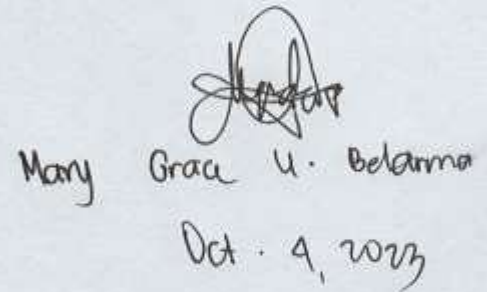 Mary Grace U. Belarma
Oct. 4, 2023